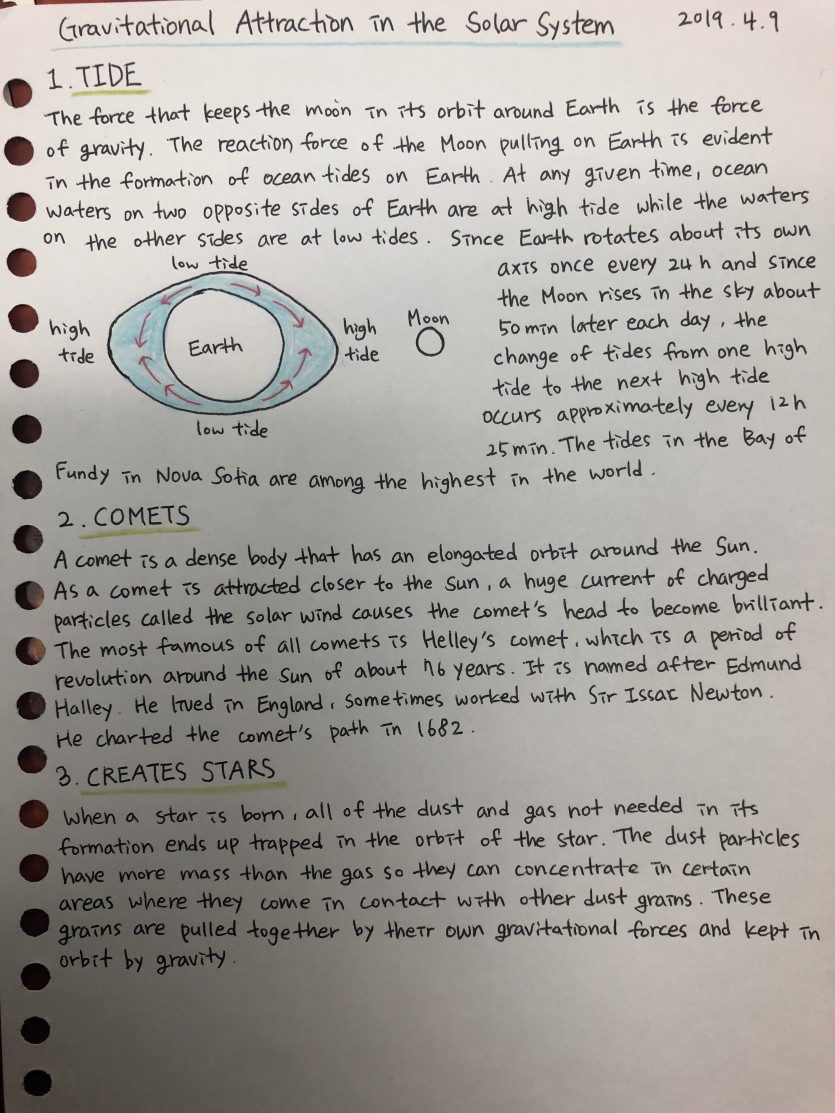 Gravitational Attraction in the Solar System 2019.4.9
1. TIDE
The force that keeps the moon in its orbit around Earth is the force
of gravity. The reaction force of the Moon pulling on Earth is evident
in the formation of ocean tides on Earth. At any given time, ocean
waters on two opposite sides of Earth are at high tide while the waters
on the other sides are at low tides. Since Earth rotates about its own
axis once every 24 h and since
the Moon rises in the sky about
50 min later each day, the
change of tides from one high
tide to the next high tide
occurs approximately every 12 h
25 min. The tides in the Bay of
low tide
high
tide
Earth
high
tide
Moon
low tide
Fundy in Nova Sotia are among the highest in the world.
2. COMETS
A comet is a dense body that has an elongated orbit around the Sun.
As a comet is attracted closer to the Sun, a huge current of charged
particles called the solar wind causes the comet's head to become brilliant.
The most famous of all comets is Helley's comet, which is a period of
revolution around the Sun of about 76 years. It is named after Edmund
Halley. He lived in England, Sometimes worked with Sir Issac Newton.
He charted the comet's path in 1682.
3. CREATES STARS
When a star is born, all of the dust and gas not needed in its
formation ends up trapped in the orbit of the star. The dust particles
have more mass than the gas so they can concentrate in certain
areas where they come in contact with other dust grains. These
grains are pulled together by their own gravitational forces and kept in
orbit by gravity.